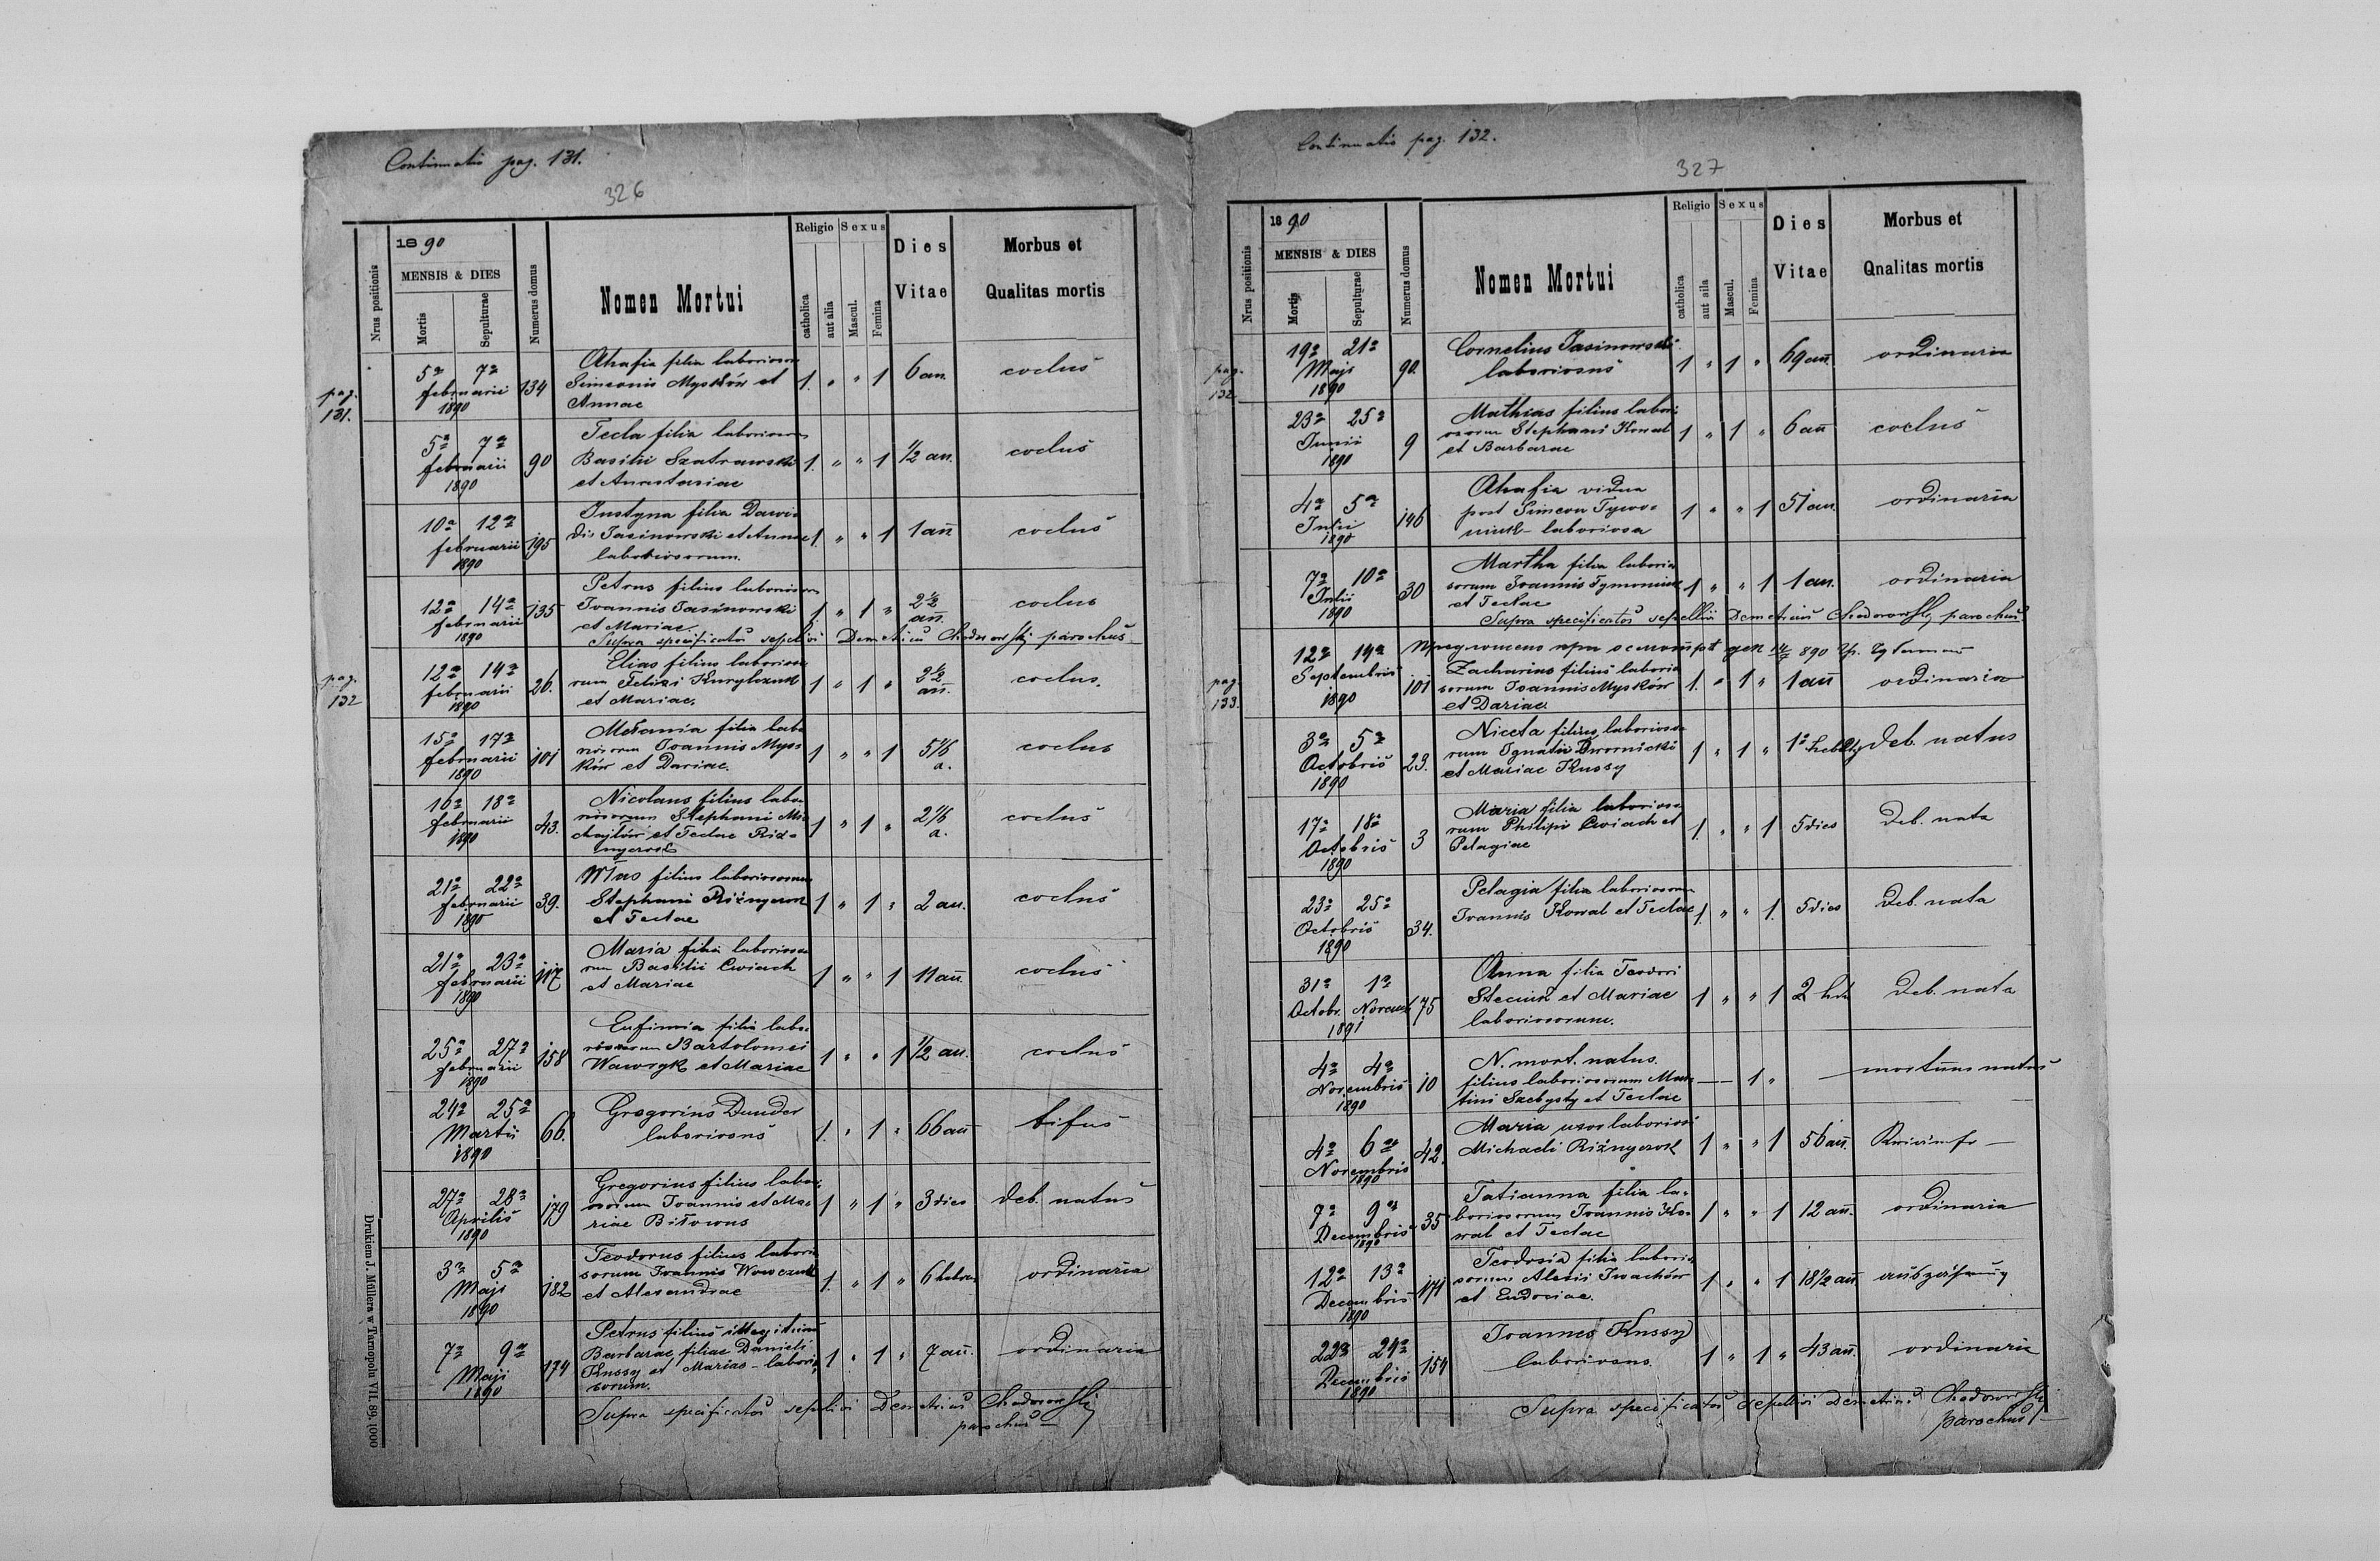 Continuatio pag. 131.
326
Nrus positionis
1890
MENSIS & DIES
Mortis
Sepulturae
Numerus domus
Nomen Mortui
Religio
catholica
aut alia
Sexus
Mascul.
Femina
Dies
Vitae
Morbus et
Qualitas mortis
pag.
131.
5a 7a
februarii
1890
134
Ahafia filia laborioson
Simeonis Myśków et
Annae
1. " " 1
6 an.
coclus
5a 7a
februarii
1890
90
Tecla filia laborioson
Basilii Szatrawski
et Anastasiae
1. " " 1
1/2 an.
coclus
10a 12a
februarii
1890
195
Justyna filia Dawi-
dis Jasinowski et Annae
laboriosorum.
1. " " 1
1 an
coclus
12a 14a
februarii
1890
135
Petrus filius laborioson
Joannis Jasinowski
et Mariae.
1 " 1 "
2 1/2
an.
coclus
Supra specificatos sepelivi Demetrius Chodorowskij parochus
pag.
132
12a 14a
februarii
1890
26.
Elias filius laborioso
rum Felixi Kuryloczuk
et Mariae.
1 " 1 "
2 1/2
an.
coclus.
15a 17a
februarii
1890
101
Melania filia labo
riosorum Joannis Myś
ków et Dariae.
1 " " 1
5 1/6
a.
coclus
16a 18a
februarii
1890
43.
Nicolaus filius labo-
riosorum Stephani Mi
chajlów et Teclae Riz-
nyczok
1 " 1 "
2 1/6
a.
coclus
21a 22a
februarii
1890
39.
Wlas filius laboriosorum
Stephani Riżnyczok
et Teclae
1 " 1 "
2 an.
coclus
21a 23a
februarii
1890
117
Maria filia laborioso
rum Basilii Cwiach
et Mariae
1 " " 1
11 an.
coclus
25a 27a
februarii
1890
158
Eufimia filia labo-
riosorum Bartolomei
Wawryk et Mariae
1 " " 1
1/2 an.
coclus
24a 25a
Martii
1890
66.
Gregorius Dunder
laboriosus
1. " 1 "
66 an
tifus
27a 28a
Aprilis
1890
179
Gregorius filius labori
osorum Joannis et Ma-
riae Biłowus
1 " 1 "
3 dies
deb. natus
3a 5a
Maji
1890
182
Teodorus filius laborio
sorum Joannis Wowczuk
et Alexandrae
1. " 1 "
6 hebdom
ordinaria
7a 9a
Maji
1890
174
Petrus filius illegitimus
Barbarae filiae Danieli
Kussy et Mariae - laborio
sorum.
1 " 1 "
7 an.
ordinaria
Supra specificatos sepelivi Demetrius Chodorowskij
parochus
Drukiem J. Müllera w Tarnopolu VII. 89. 1000
Continuatio pag. 132.
327
Nrus positionis
1890
MENSIS & DIES
Mortis
Sepulturae
Numerus domus
Nomen Mortui
Religio
catholica
aut alia
Sexus
Mascul.
Femina
Dies
Vitae
Morbus et
Qnalitas mortis
pag.
132.
19a 21a
Maji
1890
90.
Cornelius Jasinowski
laboriosus
1 " 1 "
69 an.
ordinaria
23a 25a
Junii
1890
9
Mathias filius labori
osorum Stephani Kowal
et Barbarae
1 " 1 "
6 an
coclus
4a 5a
Julii
1890
146
Ahafia vidua
post Simeon Tywo-
niuk - laboriosa
1 " " 1
51 an.
ordinaria
7a 10a
Julii
1890
30
Martha filia laborio
sorum Joannis Tymoniuk
et Teclae
1 " " 1
1 an.
ordinaria
Supra specificatos sepellivi Demetrius Chodorowskij parochus
pag.
133.
12a 14a
Septembris
1890
101
Zacharias filius laborio
sorum Joannis Myśków
et Dariae.
1. " 1 "
1 an
ordinaria
3a 5a
Octobris
1890
23.
Niceta filius laborioso
rum Ignatii Dwornicki
et Mariae Kussy
1 " 1 "
deb. natus
17a 18a
Octobris
1890
3
Maria filia laborioso
rum Philipi Cwiach et
Pelagiae
1. " " 1
5 dies
deb. nata
23a 25a
Octobris
1890
34.
Pelagia filia laboriosorum
Joannis Kowal et Teclae
1. " " 1.
5 dies
deb. nata
31a 1a
Octobr. Novemb
1891
75
Anna filia Teodori
Steciuk et Mariae
laboriosorum.
1 " " 1
2
deb. nata
4a 4a
Novembris
1890
10
N. mort. natus.
filius laboriosorum Mar-
tini Szebysty et Teclae
— 1 "
mortuus natus
4a 6a
Novembris
1890
42.
Maria uxor laboriosi
Michaeli Riżnyczok
1 " " 1
56 an.
7a 9a
Decembris
1890
35
Tatianna filia la-
boriosorum Joannis Ko-
wal et Teclae
1 " " 1
12 an.
ordinaria
12a 13a
Decembris
1890
171
Teodosia filia laborio
sorum Alexii Iwachów
et Eudociae.
1 " " 1
18 1/2 an
auszährung
22a 24a
Decembris
1890
154
Joannes Kussy
laboriosus.
1 " 1 "
43 an.
ordinaria
Supra specificatos sepellivi Demetrius Chodorowskij
parochus